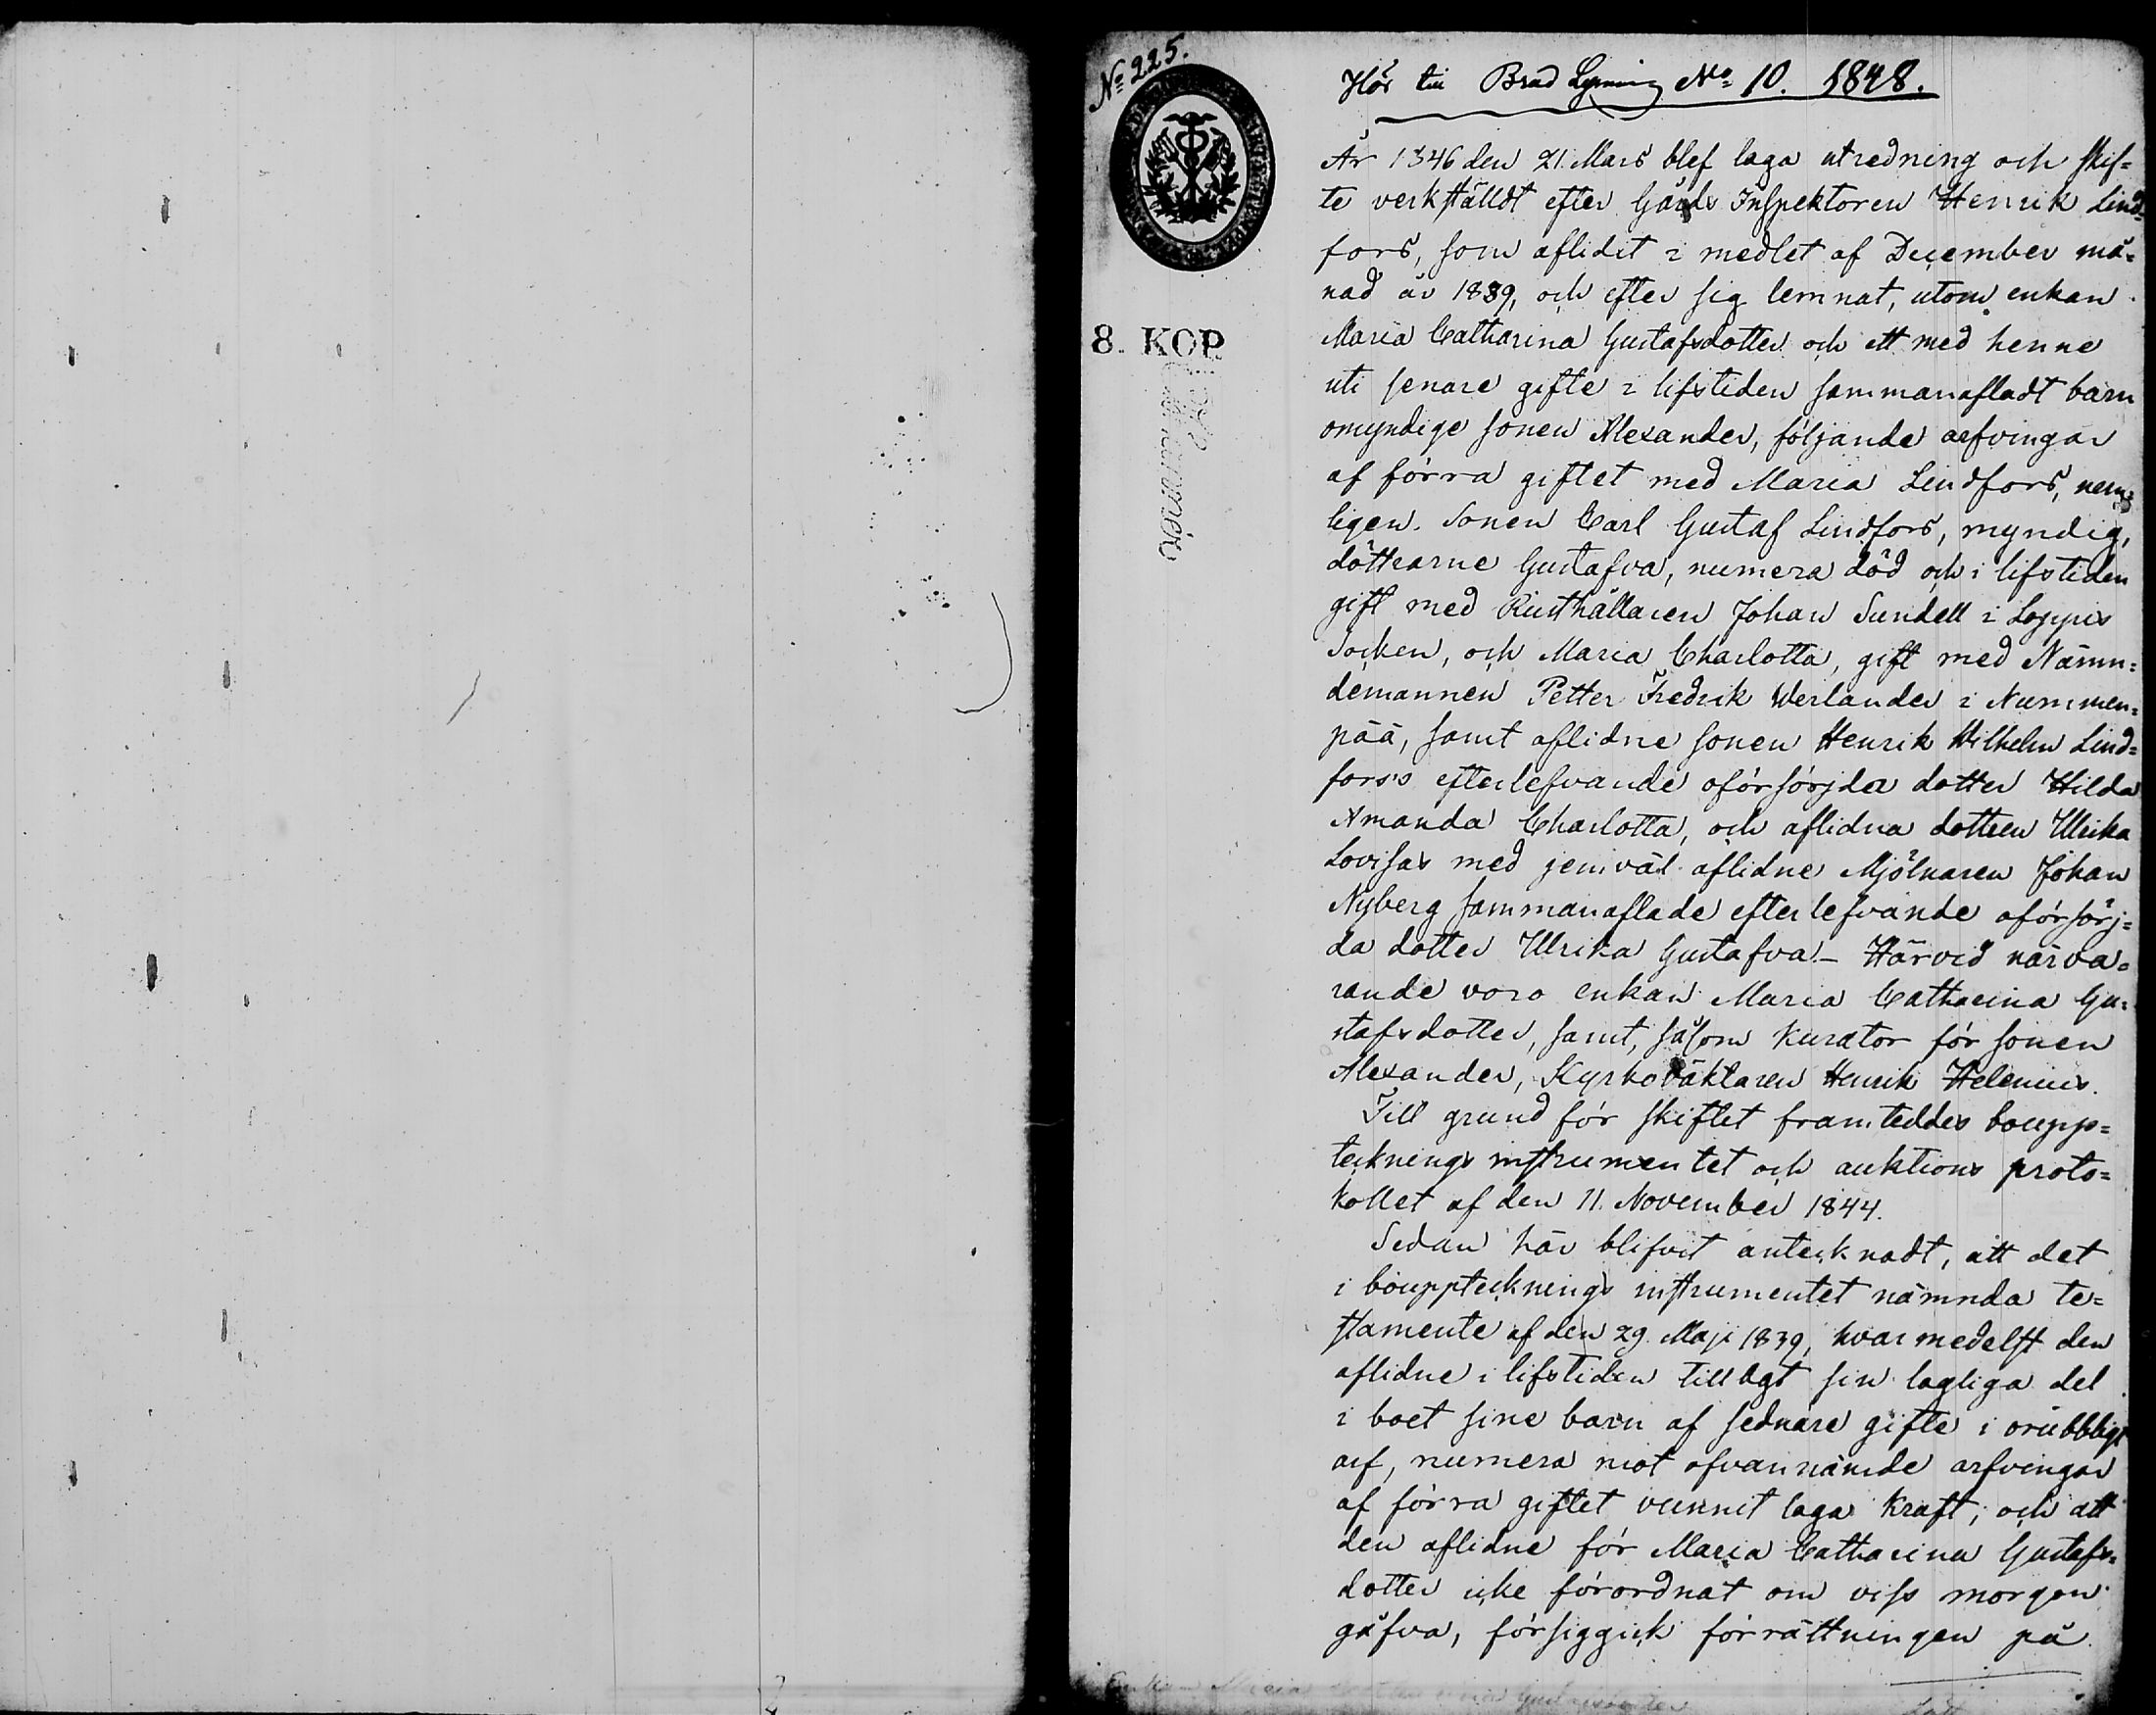 No 225.
Hör till Brad Lysning No 10. 1848.
8. KOP
År 1846 den 21. Mars blef laga utredning och skif=
te verkstäldt efter Gårds Inspektoren Henrik Lind=
fors, som aflidit i medlet af December må=
nad år 1839, och efter sig lemnat, utom enkan
Maria Catharina Gustafsdotter och ett med henne
uti senare gifte i lifstiden sammanafladt barn
omyndige sonen Alexander, följande arfvingar
af förra giftet med Maria Lindfors, nem=
ligen. Sonen Carl Gustaf Lindfors, myndig,
döttrarne Gustafva, numera död och i lifstiden
gift med Rusthållaren Johan Sundell i Loppis
Socken, och Maria Charlotta, gift med Nämn=
demannen Petter Fredrik Werlander i Nummen=
pää, samt aflidne sonen Henrik Wilhelm Lind=
fors's efterlefvande oförsörjda dotter Hilda
Amanda Charlotta, och aflidna dottren Ulrika
Lovisas med jemväl aflidne Mjölnaren Johan
Nyberg sammanaflade efterlefvande oförsörj=
da dotter Ulrika Gustafva. – Härvid närva=
rande voro enkan Maria Catharina Gu=
stafsdotter, samt, såsom kurator för sonen
Alexander, Kyrkoväktaren Henrik Helenius.
Till grund för skiftet framteddes boupp=
tecknings instrumentet och auktions proto=
kollet af den 11. November 1844.
Sedan här blifvit antecknadt, att det
i bouppteknings instrumentet nämnda te=
stamente af den 29 Maji 1839, hvarmedelst den
aflidne i lifstiden tillagt sin lagliga del
i boet sine barn af sednare gifte i orubbligt
arf, numera mot ofvannämde arfvingar
af förra giftet vunnit laga kraft, och att
den aflidne för Maria Catharina Gustafs=
dotter icke förordnat om viss morgon
gåfva, försiggick förrättningen på